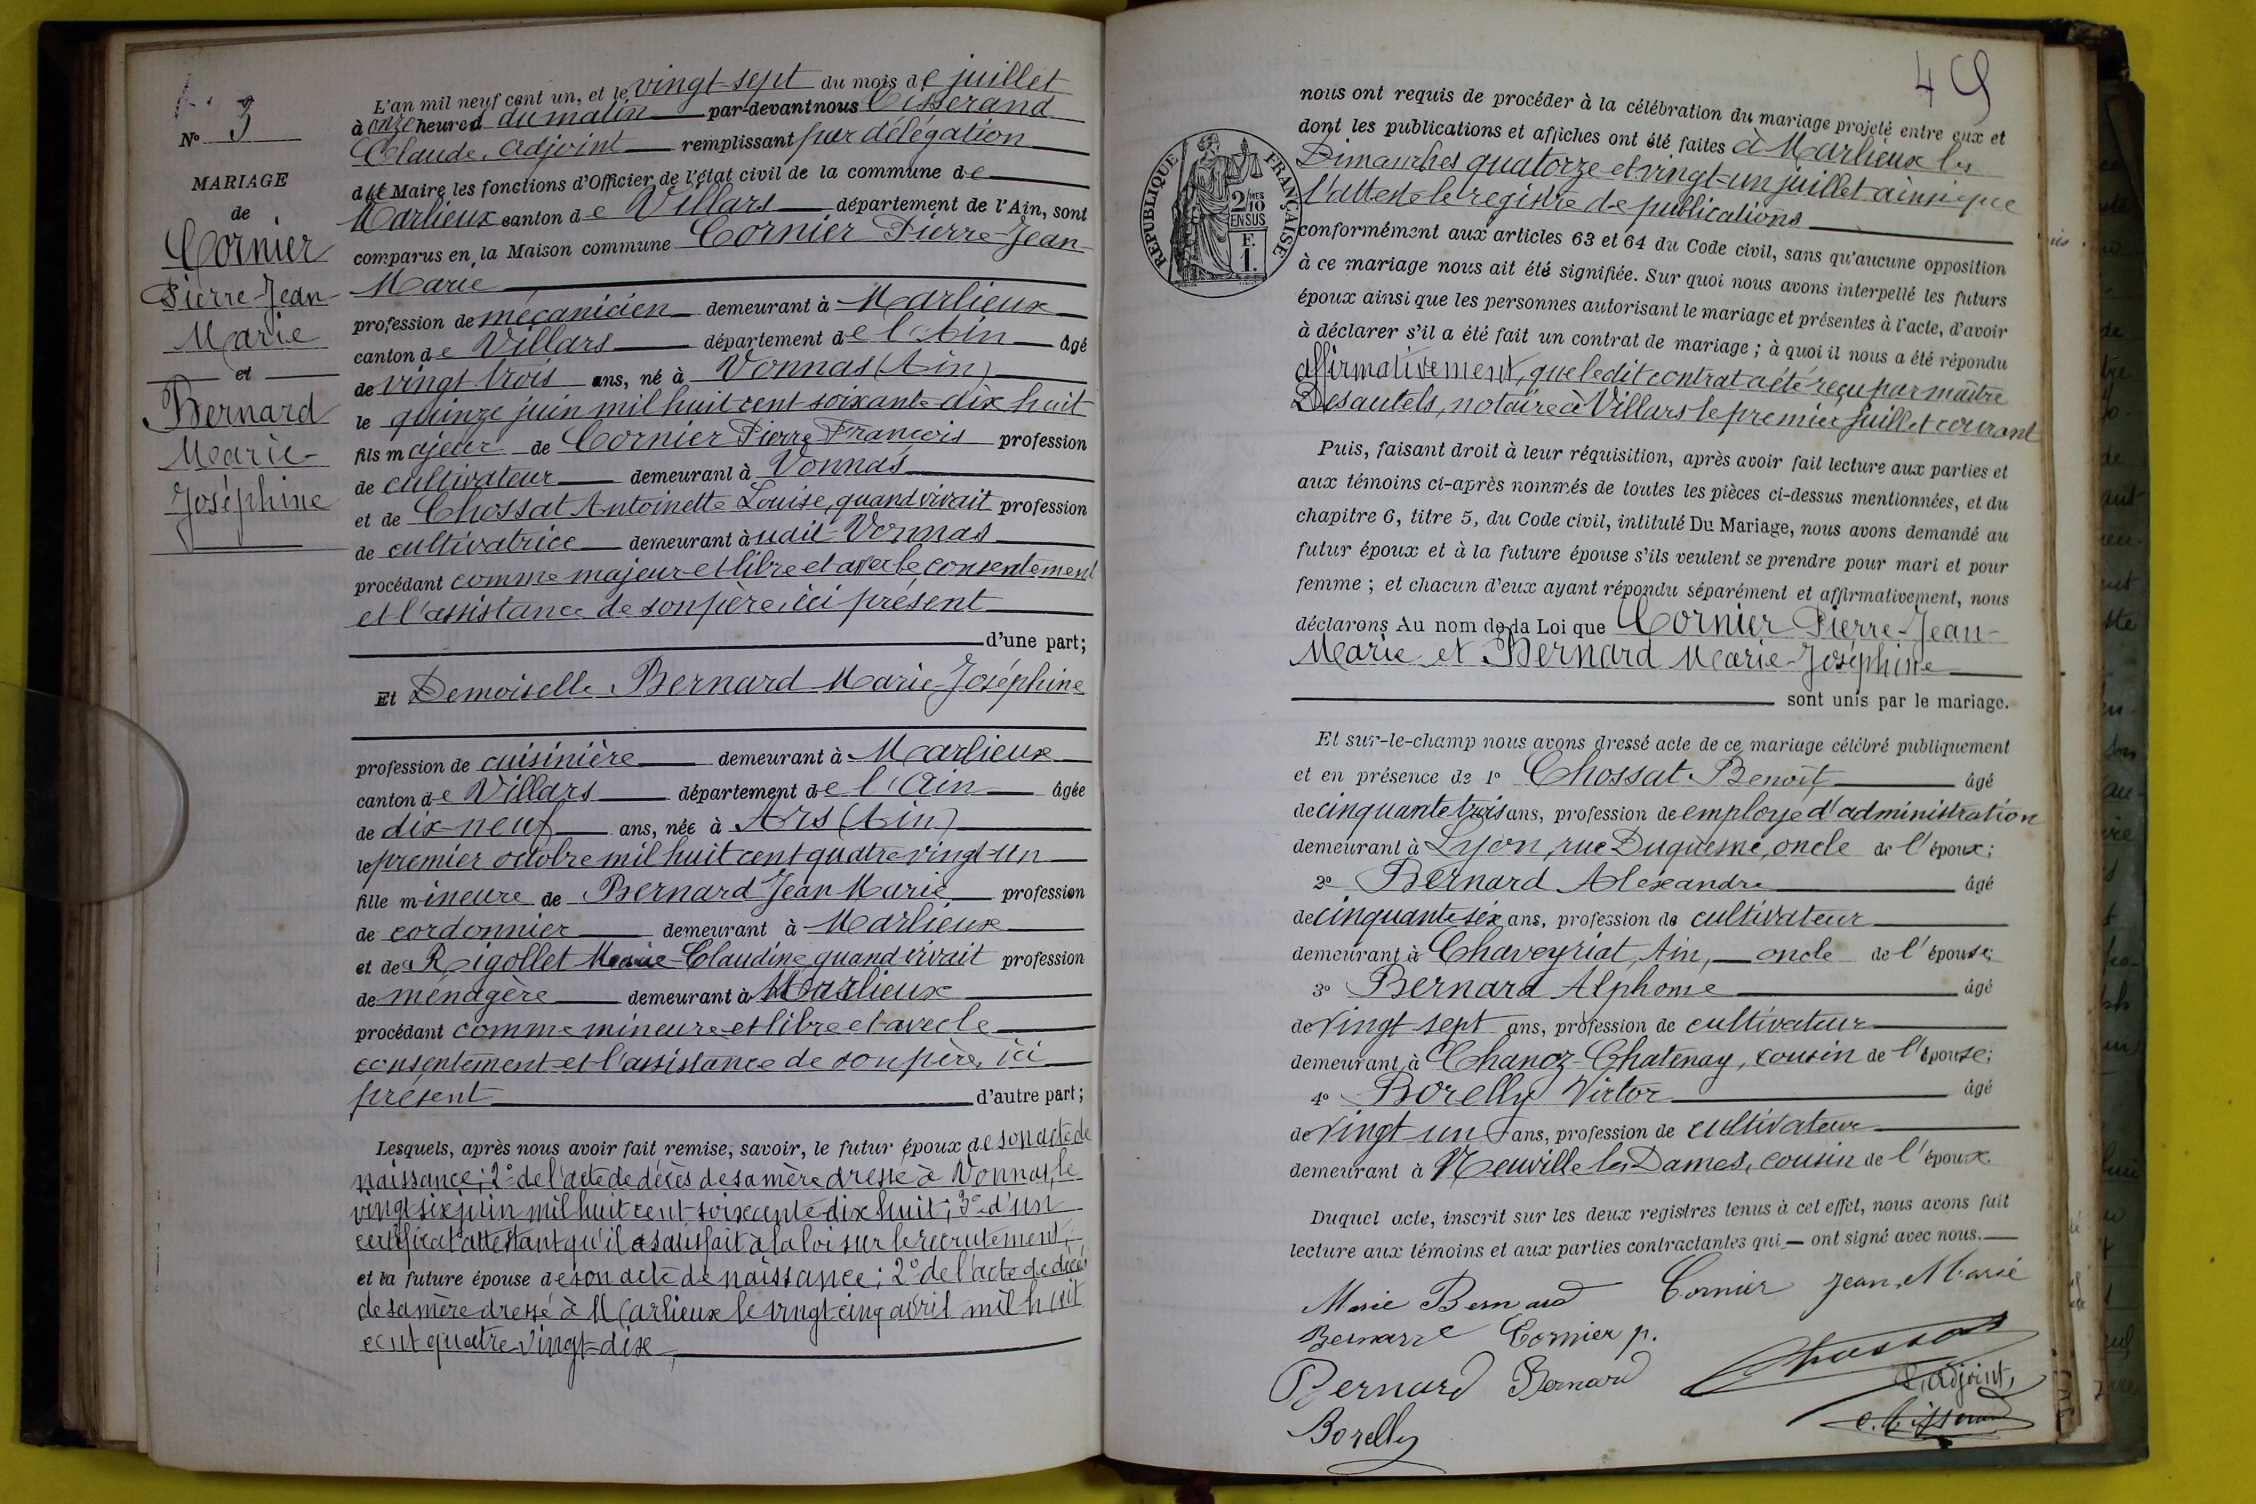 N° 3
MARIAGE
de
Cornier
Pierre-Jean-
Marie
et
Bernard
Marie-
Joséphine
L'an mil neuf cent un, et le vingt-sept du mois de juillet
à onze heures du matin par-devant nous Tisserand
Claude, adjoint remplissant par délégation
du Maire les fonctions d'Officier de l'état civil de la commune de
Marlieux canton de Villars département de l'Ain, sont
comparus en la Maison commune Cornier Pierre-Jean-
Marie
profession de mécanicien demeurant à Marlieux
canton de Villars département de l'Ain âgé
de vingt trois ans, né à Vonnas (Ain)
le quinze juin mil huit cent soixante-dix huit
fils majeur de Cornier Pierre François profession
de cultivateur demeurant à Vonnas
et de Chossat Antoinette Louise, quand vivait profession
de cultivatrice demeurant à udit Vonnas
procédant comme majeur et libre et avec le consentement
et l'assistance de son père, ici présent
d'une part;
Et Demoiselle Bernard Marie-Joséphine
profession de cuisinière demeurant à Marlieux
canton de Villars département de l'Ain âgée
de dix-neuf ans, née à Ars (Ain)
le premier octobre mil huit cent quatre vingt-un
fille mineure de Bernard Jean Marie profession
de cordonnier demeurant à Marlieux
et de Rigollet Marie-Claudine quand vivait profession
de ménagère demeurant à Marlieux
procédant comme mineure et libre et avec le
consentement et l'assistance de son père, ici
présent d'autre part;
Lesquels, après nous avoir fait remise, savoir, le futur époux de son acte de
naissance; 2° de l'acte de décès de sa mère dressé à Vonnas, le
vingt six juin mil huit cent soixante-dix huit; 3° d'un
certificat attestant qu'il a satisfait à la loi sur le recrutement,
et la future épouse de son acte de naissance; 2° de l'acte de décès
de sa mère dressé à Marlieux le vingt-cinq avril mil huit
cent quatre-vingt-dix
49
RÉPUBLIQUE FRANÇAISE
2/10MES
EN SUS
F.
1.
nous ont requis de procéder à la célébration du mariage projeté entre eux et
dont les publications et affiches ont été faites à Marlieux les
Dimanches quatorze et vingt-un juillet ainsi que
l'atteste le registre de publications
conformément aux articles 63 et 64 du Code civil, sans qu'aucune opposition
à ce mariage nous ait été signifiée. Sur quoi nous avons interpellé les futurs
époux ainsi que les personnes autorisant le mariage et présentes à l'acte, d'avoir
à déclarer s'il a été fait un contrat de mariage; à quoi il nous a été répondu
affirmativement, que ledit contrat a été reçu par maître
Desautels, notaire à Villars le premier juillet courant
Puis, faisant droit à leur réquisition, après avoir fait lecture aux parties et
aux témoins ci-après nommés de toutes les pièces ci-dessus mentionnées, et du
chapitre 6, titre 5, du Code civil, intitulé Du Mariage, nous avons demandé au
futur époux et à la future épouse s'ils veulent se prendre pour mari et pour
femme; et chacun d'eux ayant répondu séparément et affirmativement, nous
déclarons Au nom de la Loi que Cornier Pierre-Jean-
Marie et Bernard Marie-Joséphine
sont unis par le mariage.
Et sur-le-champ nous avons dressé acte de ce mariage célébré publiquement
et en présence de 1° Chossat Benoît âgé
de cinquante trois ans, profession de employé d'administration
demeurant à Lyon, rue Duquesne, oncle de l'époux;
2° Bernard Alexandre âgé
de cinquante six ans, profession de cultivateur
demeurant à Chaveyriat, Ain, oncle de l'épouse;
3° Bernard Alphonse âgé
de vingt-sept ans, profession de cultivateur
demeurant à Chanoz-Chatenay, cousin de l'épouse;
4° Borelly Victor âgé
de vingt un ans, profession de cultivateur
demeurant à Neuville les Dames, cousin de l'époux.
Duquel acte, inscrit sur les deux registres tenus à cet effet, nous avons fait
lecture aux témoins et aux parties contractantes qui ont signé avec nous.
Marie Bernard Cornier Jean Marie
Bernard Cornier p.
Chossat
Bernard Bernard
L'adjoint,
Borelly
C. Tisserand